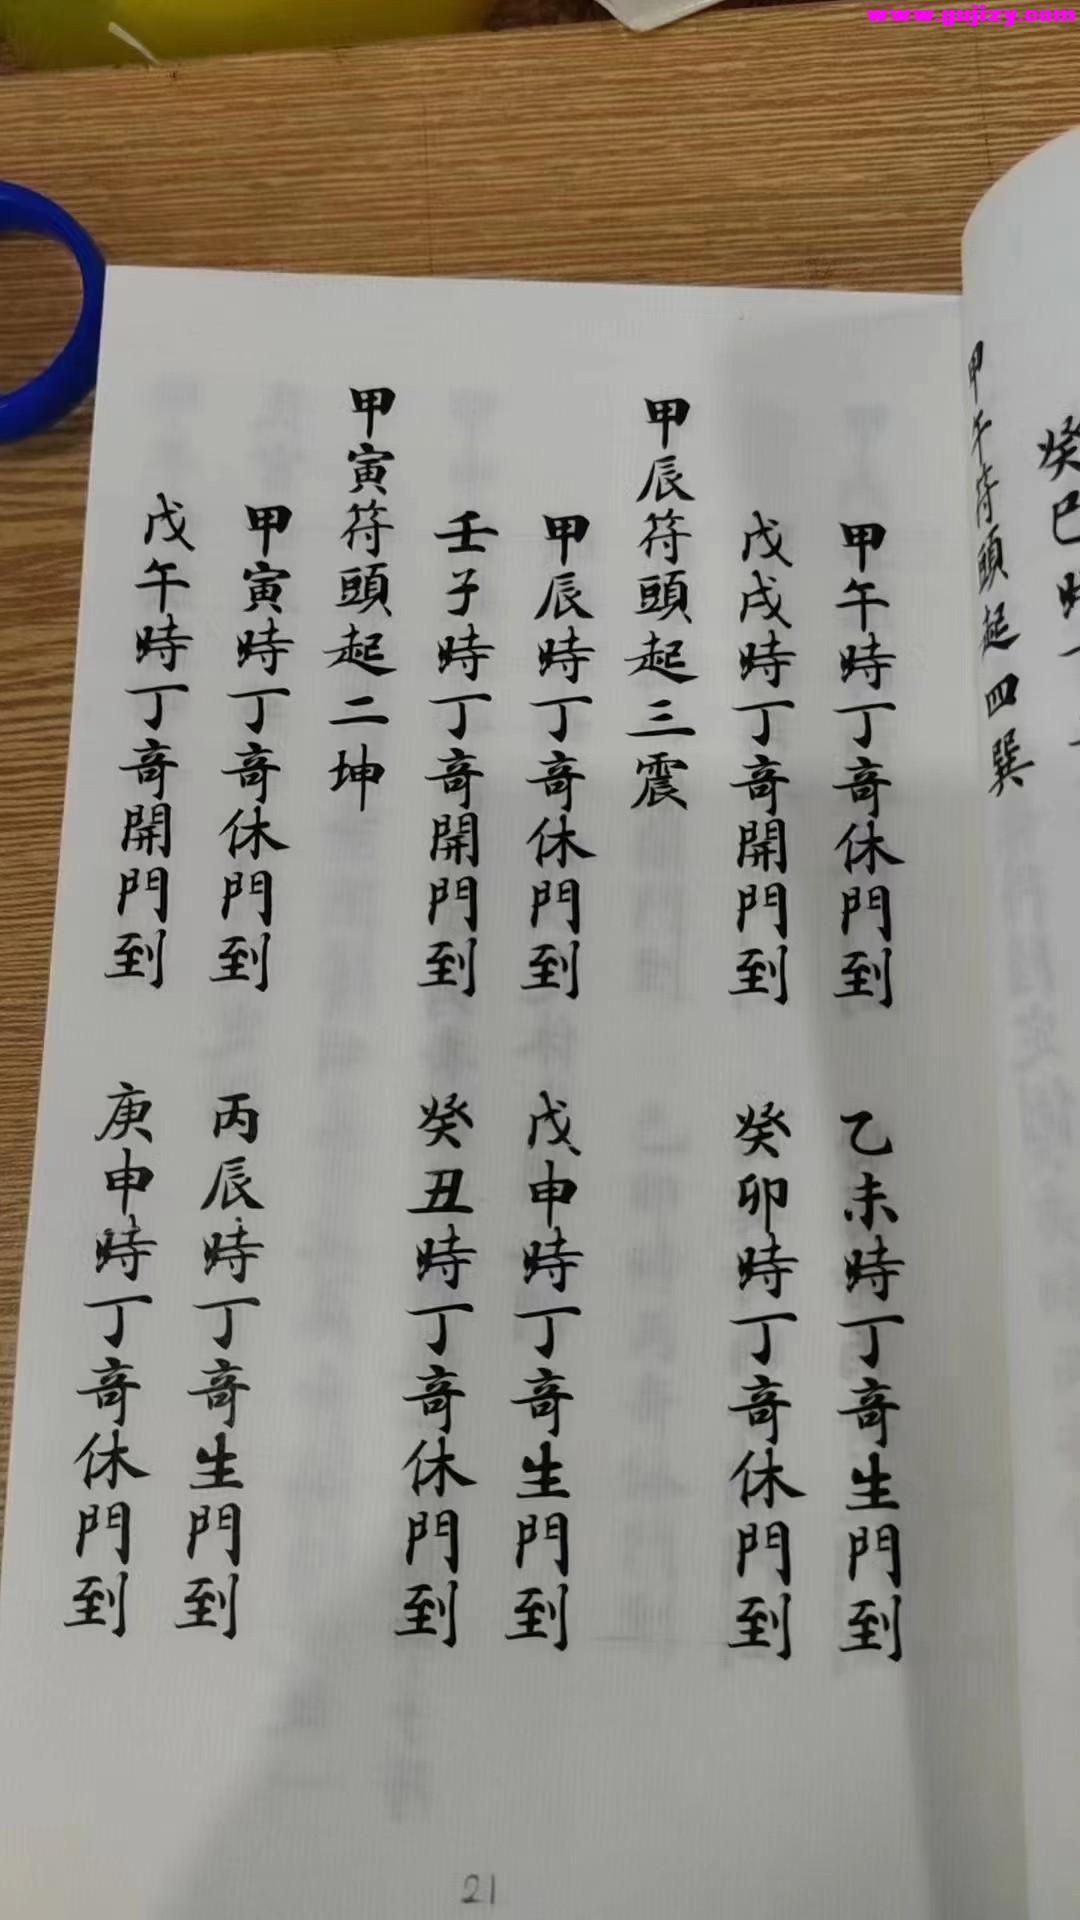 www.gujizy.com
癸巳時
甲午符頭起四巽
甲午時丁奇休門到　乙未時丁奇生門到
戊戌時丁奇開門到　癸卯時丁奇休門到
甲辰符頭起三震
甲辰時丁奇休門到　戊申時丁奇生門到
壬子時丁奇開門到　癸丑時丁奇休門到
甲寅符頭起二坤
甲寅時丁奇休門到　丙辰時丁奇生門到
戊午時丁奇開門到　庚申時丁奇休門到
21